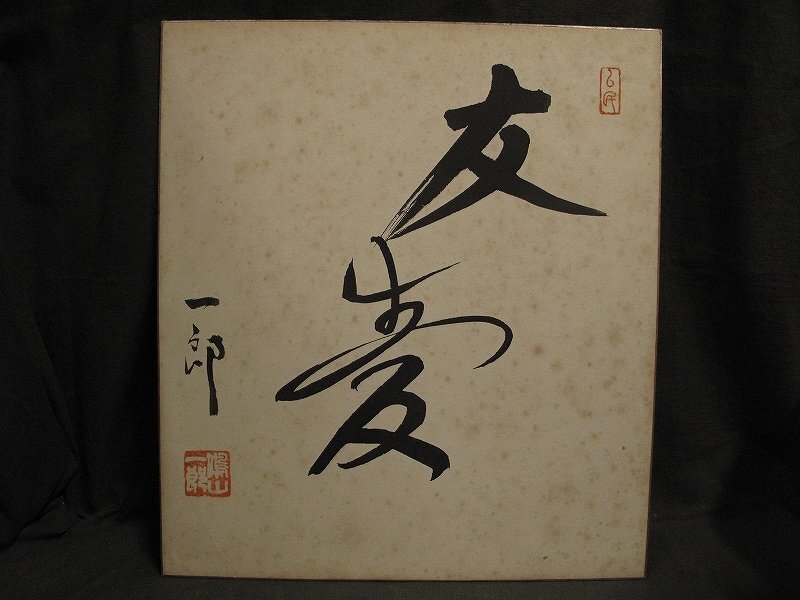 友愛
一郎
鳩山
一郎